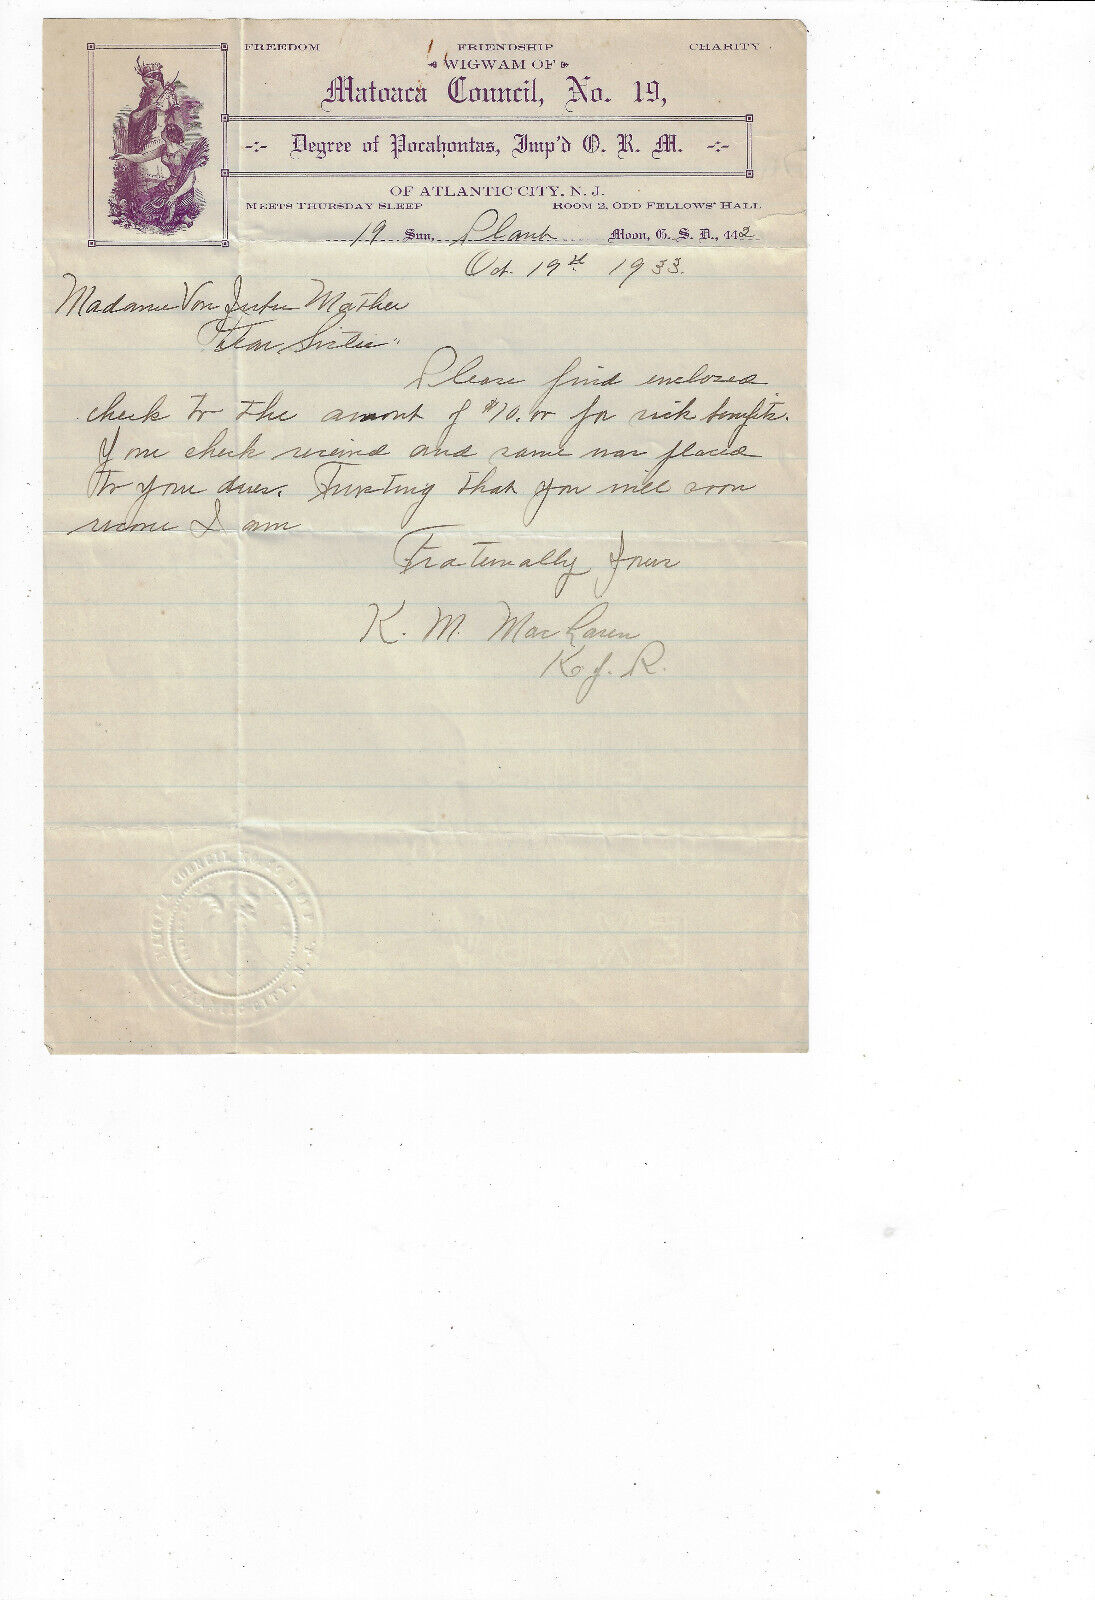 FREEDOM FRIENDSHIP CHARITY
WIGWAM OF
Matoaca Council, No. 19,
Degree of Pocahontas, Imp'd O. R. M.
OF ATLANTIC CITY, N. J.
MEETS THURSDAY SLEEP ROOM 2, ODD FELLOWS' HALL
19 Sun, Plant Moon, G. S. D., 442
Oct. 19th 1933.
Madame Von Mather
Dear Sister"
Please find enclosed
check to the amount of $10. for sick benefits.
Your check received and same was placed
to your dues. Trusting that you will soon
I am
Fraternally Yours
K. M. MacLaren
K of R.
MATOACA COUNCIL NO. 19 D. OF P.
ATLANTIC CITY, N. J.